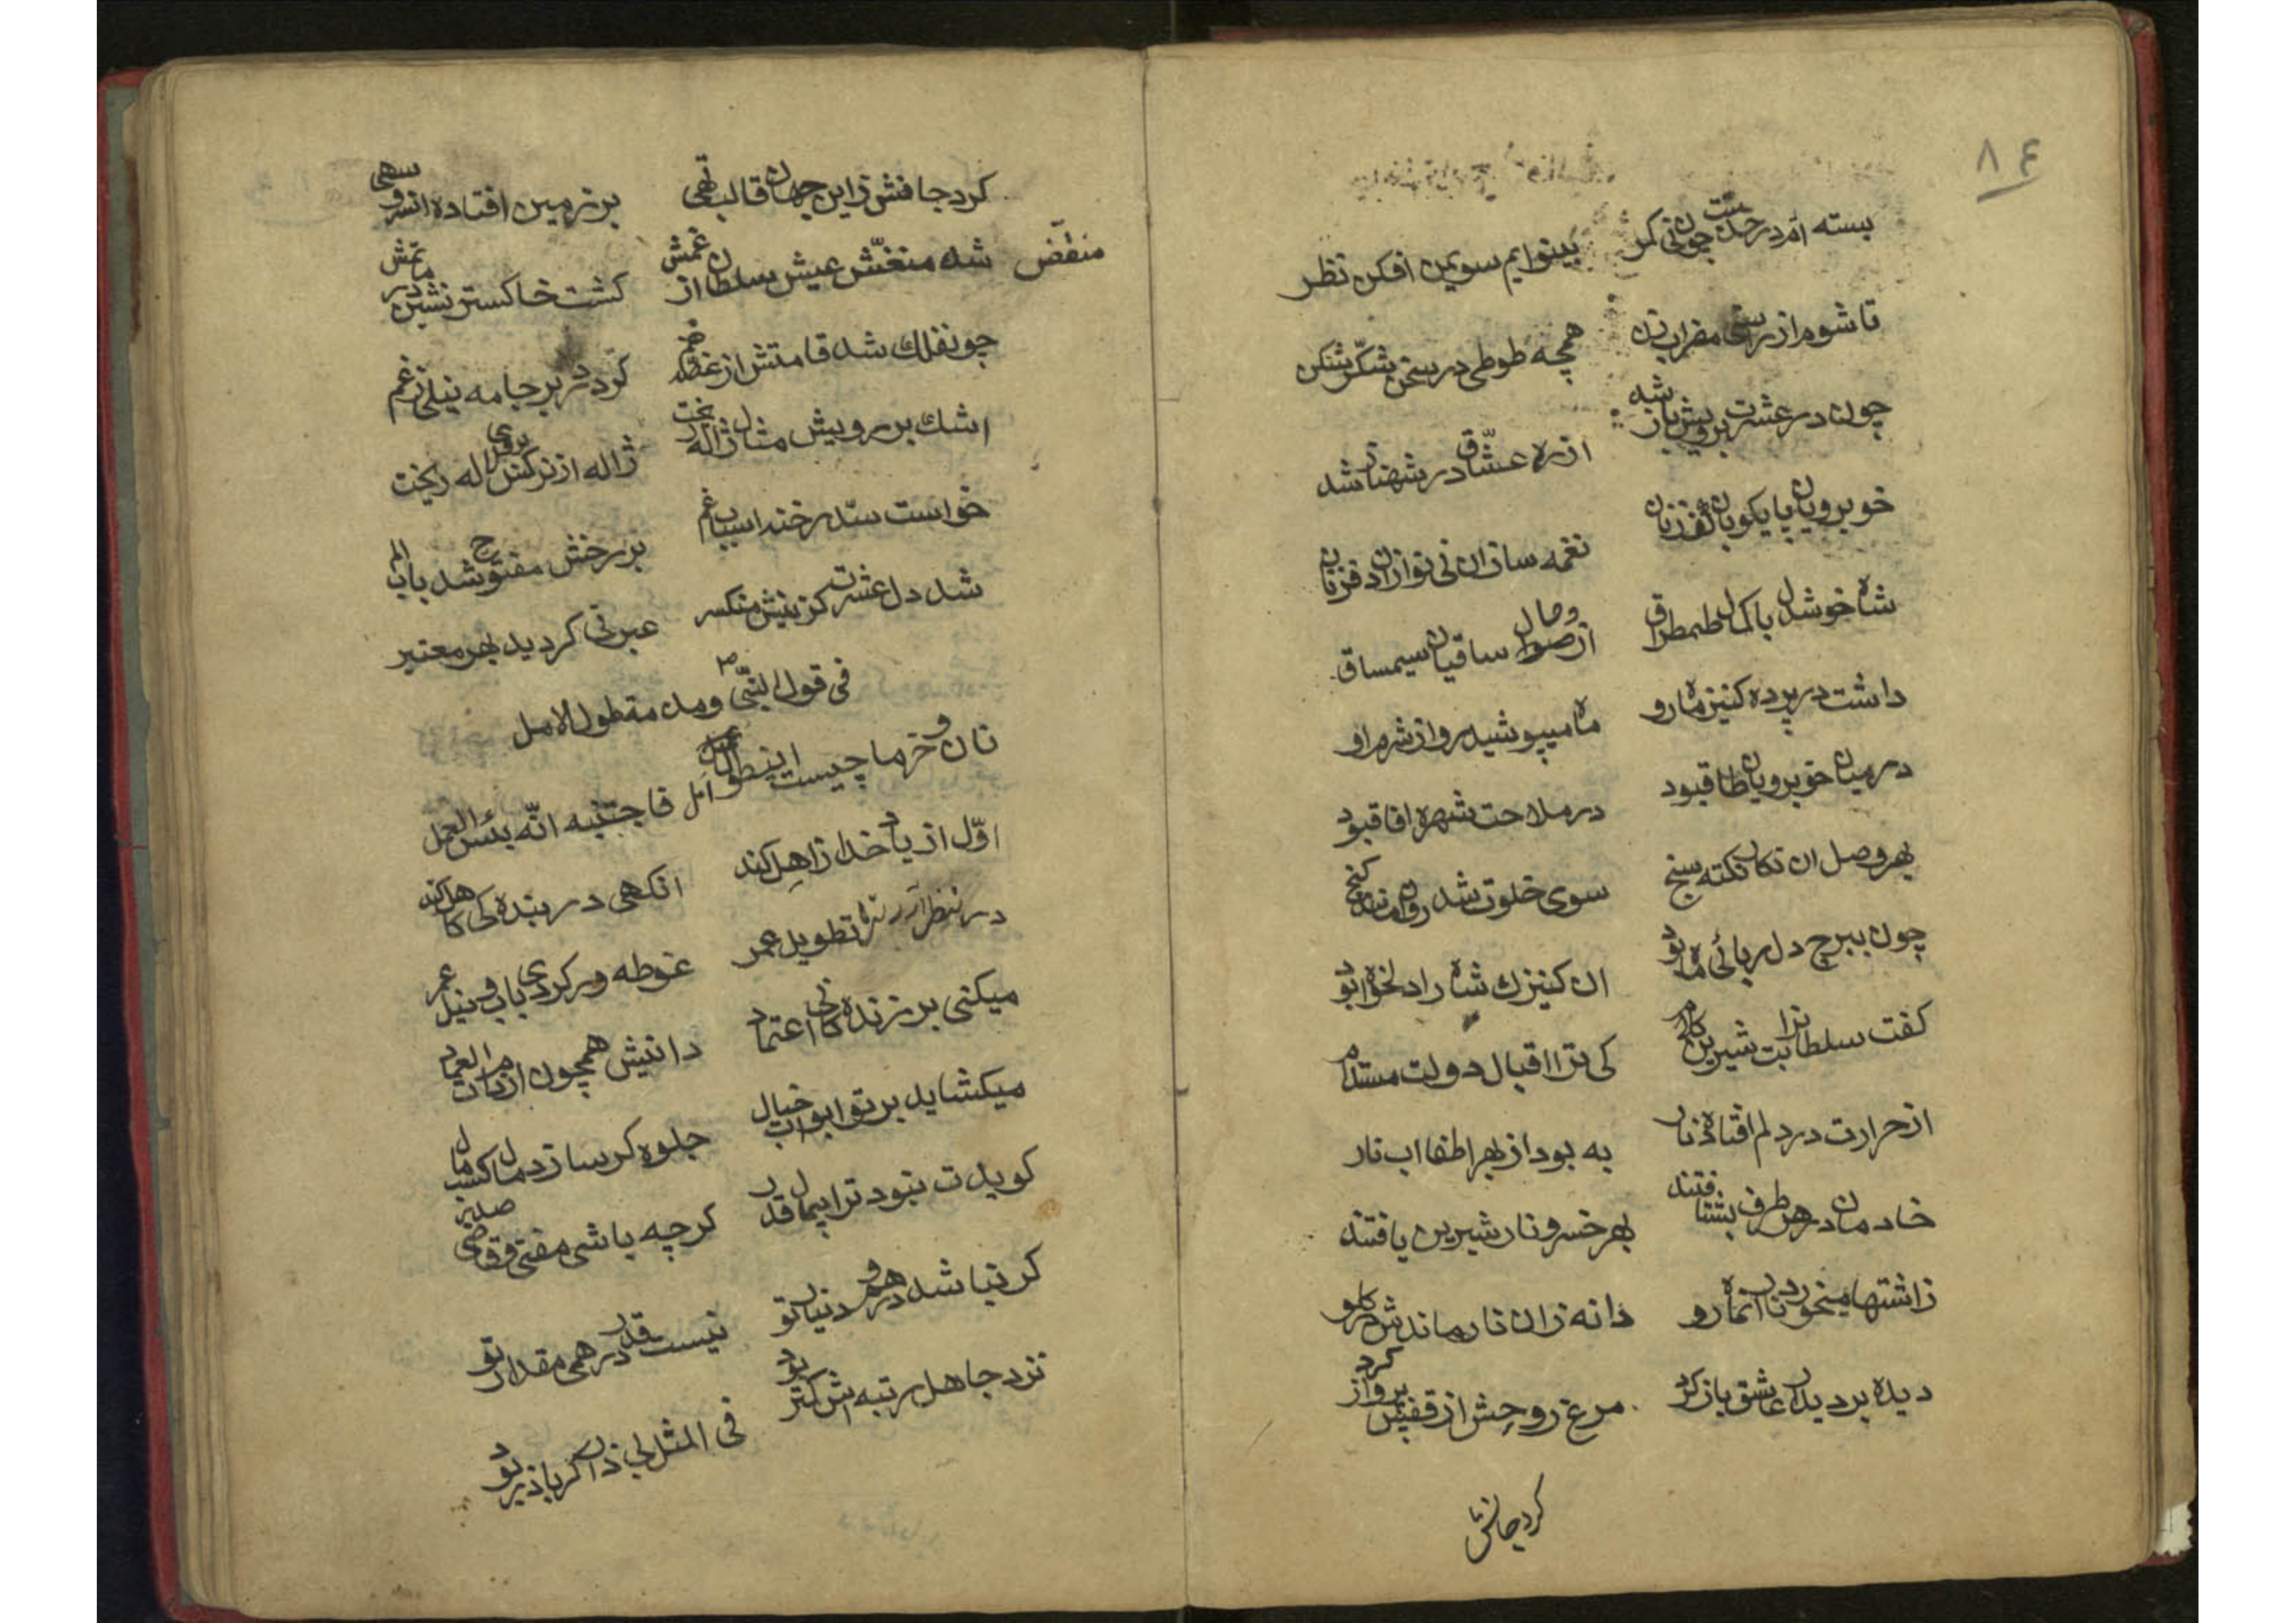 ۸۴
بسته ام در خدمتت چون نی کمر بینوایم سویمن افکن نظر
تا شوم از همچه طوطی در سخن شکر شکن
چون در عشرت برویش باز شد از ره عشاق در شهناز شد
خوبرویان پایکوبان کفزنان نغمه سازان نی نوازان دفزنان
شاه خوشدل باکمال طمطراق از وصال ساقیان سیمساق
داشت در پرده کنیز ماهرو ماه میپوشید رو از شرم او
در میان خوبرویان طاقبود در ملاحت شهره افاقبود
بهر وصل ان نکار نکته سنج سوی خلوت شد روان مانند کنج
چون ببرج دل ربائی ماه بود ان کنیزک شاه را دلخواه بود
کفت سلطانرا بت شیرین کلام کی ترا اقبال دولت مستدام
از حرارت در دلم افتاده نار به بود از بهر اطفا اب نار
خادمان در هر طرف بشتافتند بهر خسرو نار شیرین یافتند
زاشتها میخورد نار انماهرو دانه زان نار ماندش در کلو
دیده بر دیدار عاشق باز کرد مرغ روحش از قفس پرواز کرد
کرد جانش
کرد جانش زاین جهان قالب تهی بر زمین افتاده انسرو سهی
منغّض شه منغّش عیش سلطان از غمش کشت خاکستر نشین در ماتمش
چو نفلک شد قامتش از غصه خم کرد در بر جامه نیلی زغم
اشک بر رویش مثال ژاله ریخت ژاله از نرکس بروی لاله ریخت
خواست سدّ رخنه اسباب غم بر رخش مفتوح شد باب الم
شد دل عشرت کزینش منکسر عبرتی کردید بهر معتبر
فی قول النبی ص ومدمة طول الامل
نان و خرما چیست این طول امل فاجتنبه انّه بئس العمل
اوّل از یاد خدا زاهل کند انکهی در بنده کی کاهل کند
در نظر ارد تره تطویل عمر غوطه ور کردی باب نیل عمر
میکنی بر زنده کانی اعتماد دانیش همچون ارم ذات العماد
میکشاید بر تو ابواب خیال جلوه کر سازد مال کسب مال
کویدت نبود ترا پیمال قدر کرچه باشی مفتی و قاضی صدر
کر نباشد درهم و دینار تو نیست قدر درهمی مقدار تو
نزد جاهل رتبه اش کمتر بود فی المثل بی ذر اکر باذر بود